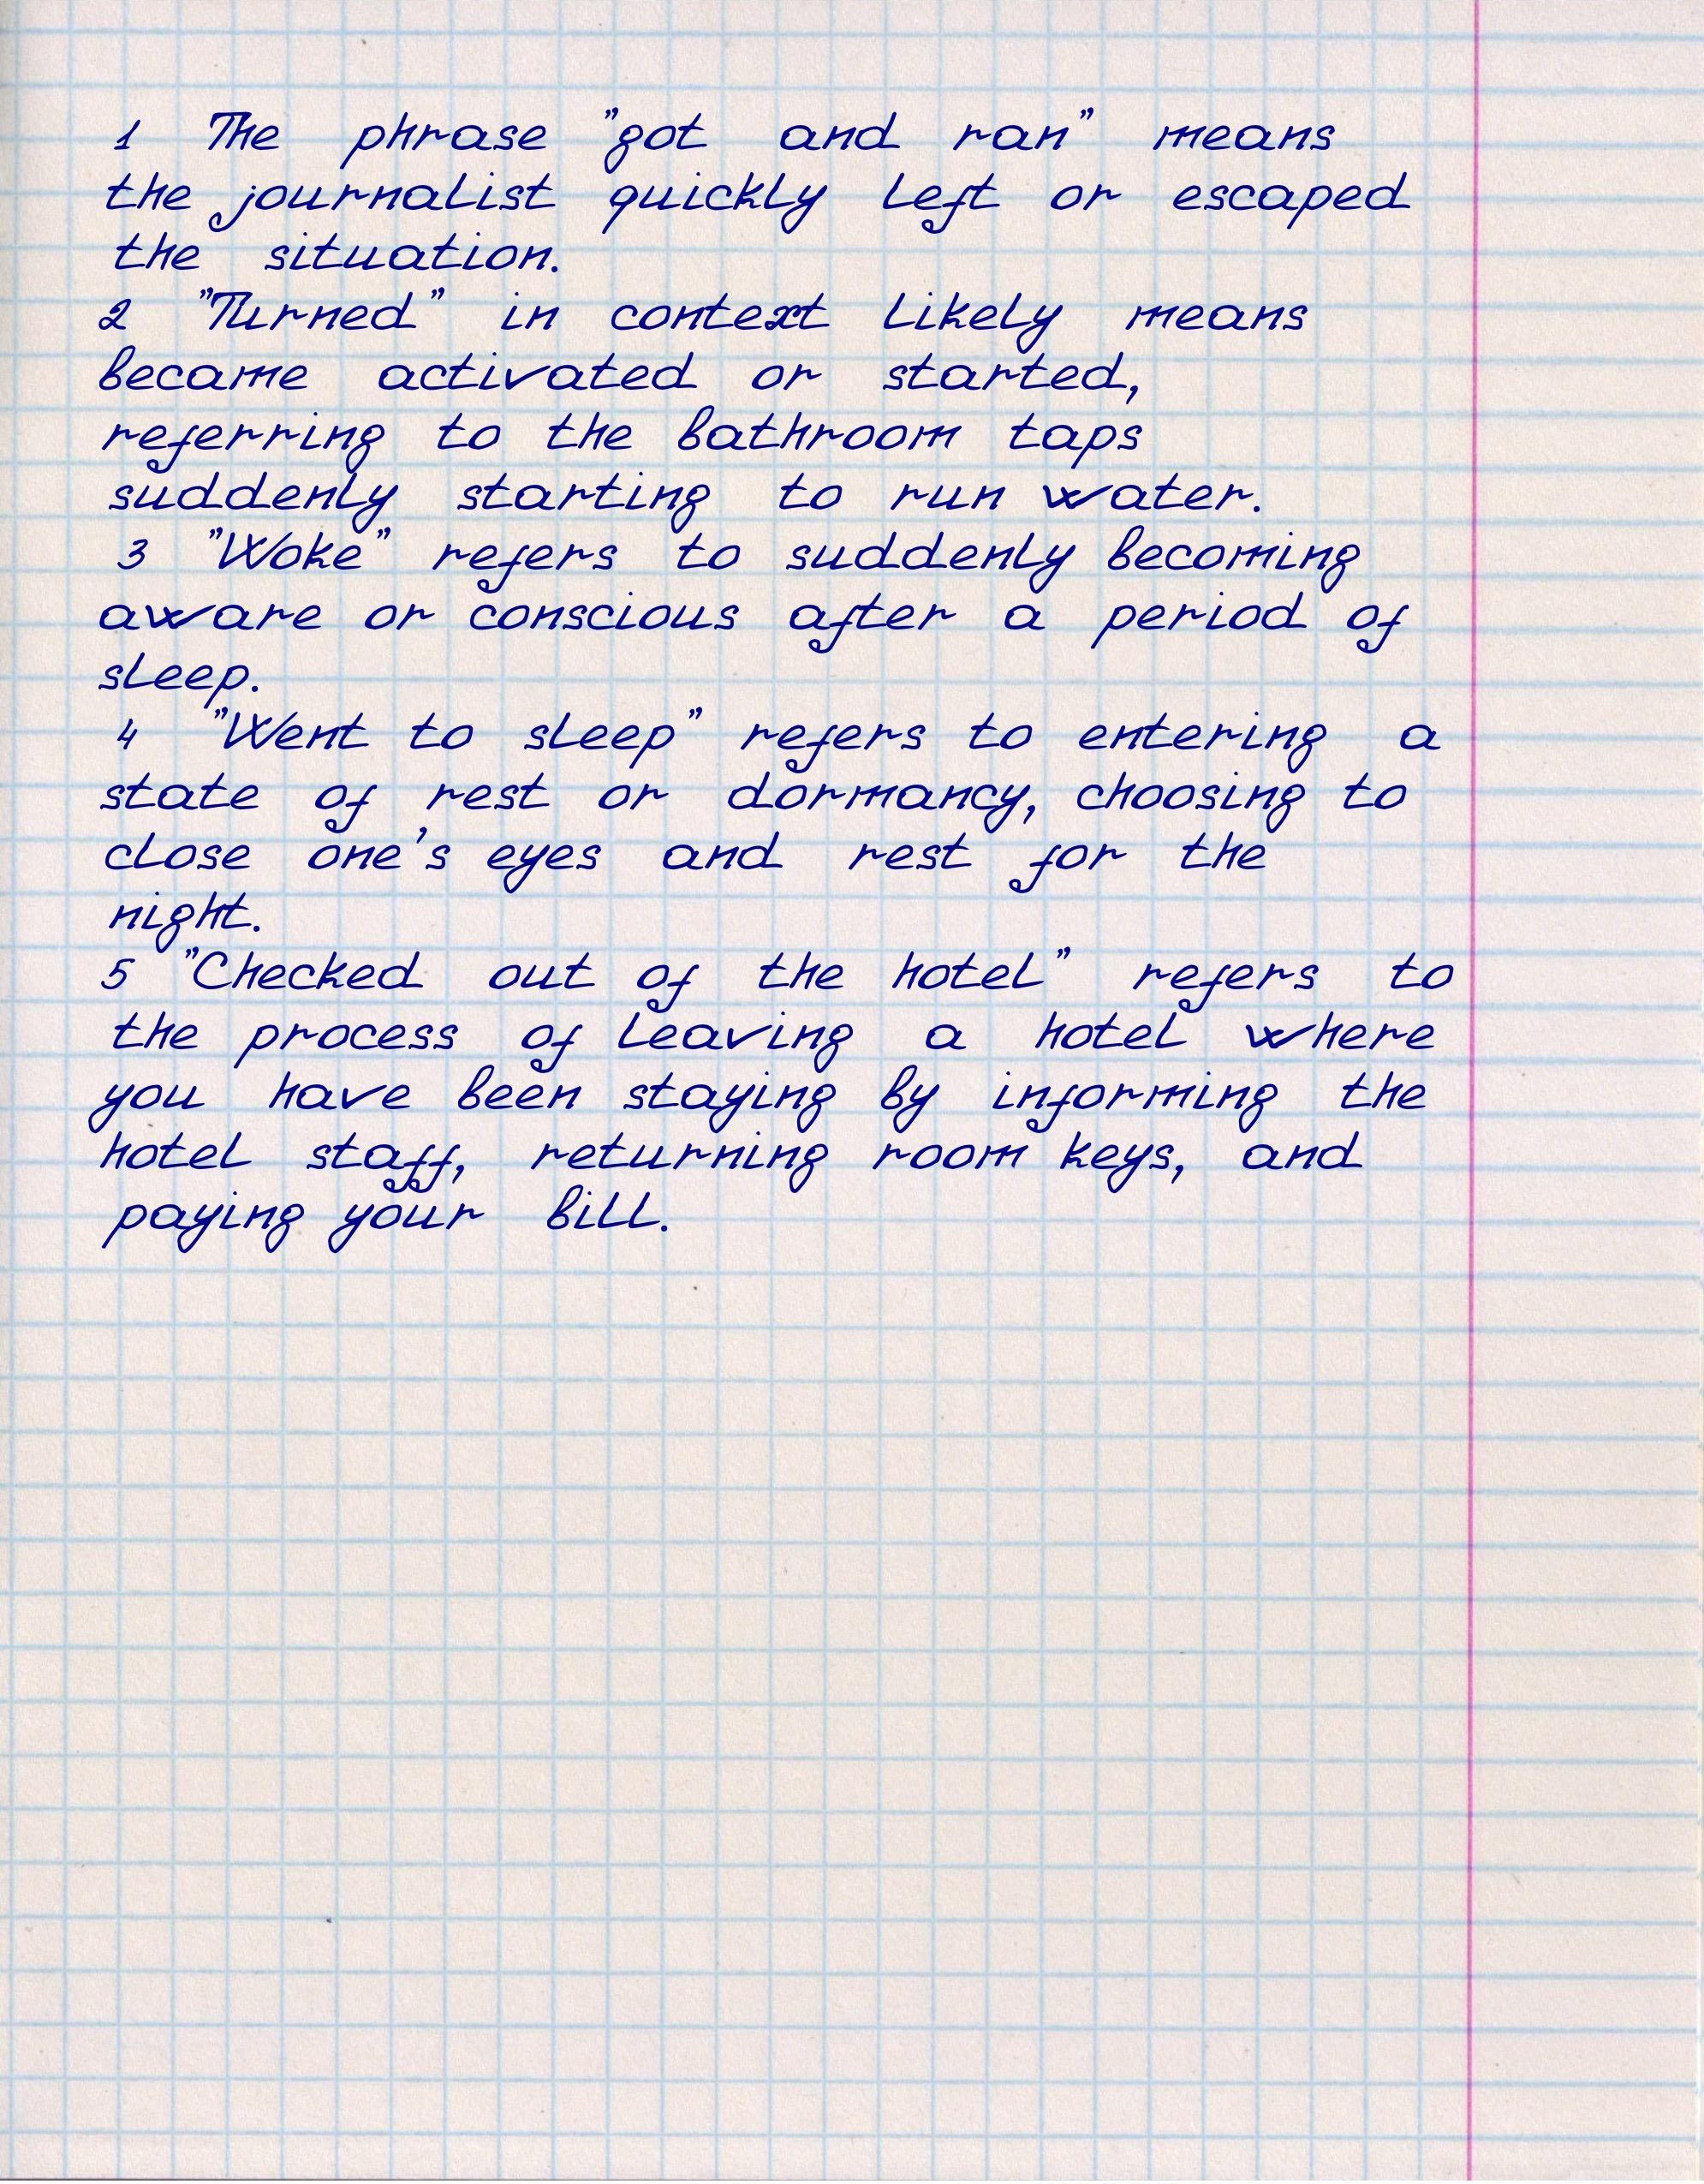 1 The phrase "got and ran" means
the journalist quickly left or escaped
the situation.
2 "Turned" in context likely means
became activated or started,
referring to the bathroom taps
suddenly starting to run water.
3 "Woke" refers to suddenly becoming
aware or conscious after a period of
sleep.
4 "Went to sleep" refers to entering a
state of rest or dormancy, choosing to
close one's eyes and rest for the
night.
5 "Checked out of the hotel" refers to
the process of leaving a hotel where
you have been staying by informing the
hotel staff, returning room keys, and
paying your bill.